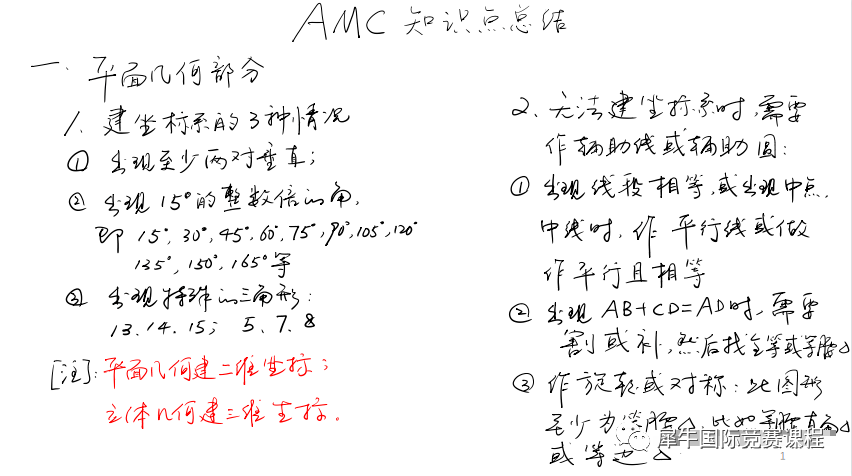 AMC 知识点总结
一. 平面几何部分
1. 建坐标系的3种情况
① 出现至少两对垂直;
② 出现15°的整数倍的角,
即 15°, 30°, 45°, 60°, 75°, 90°, 105°, 120°
135°, 150°, 165°等
③ 出现特殊的三角形:
13. 14. 15; 5、7、8
[注]: 平面几何建二维坐标;
立体几何建三维坐标.
2、无法建坐标系时, 需要
作辅助线或辅助圆:
① 出现线段相等, 或出现中点,
中线时, 作平行线或做
作平行且相等
② 出现 AB+CD=AD时, 需要
割或补, 然后找全等或等腰△
③ 作旋转或对称: 此图形
至少为等腰△, 比如等腰直角△
或等边△
犀牛国际竞赛课程
1